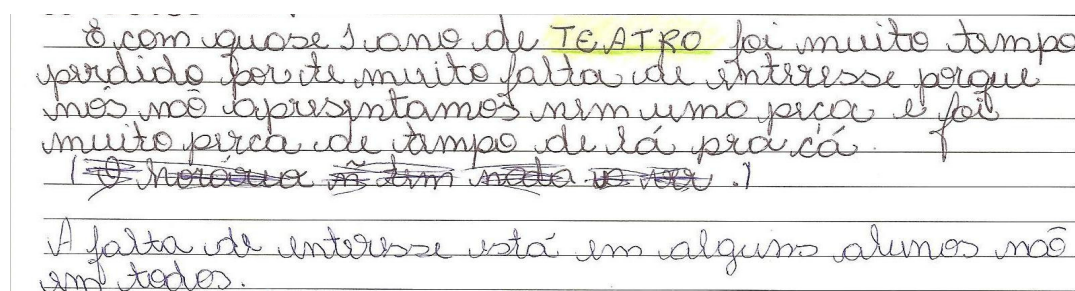 E com quase 1 ano de TEATRO foi muito tempo
perdido por te muito falta de interesse porque
nós não apresentamos nem uma peça e foi
muito perca de tempo de lá pra cá.
(O horário ñ tem nada a ver.)
A falta de interesse está em alguns alunos não
em todos.